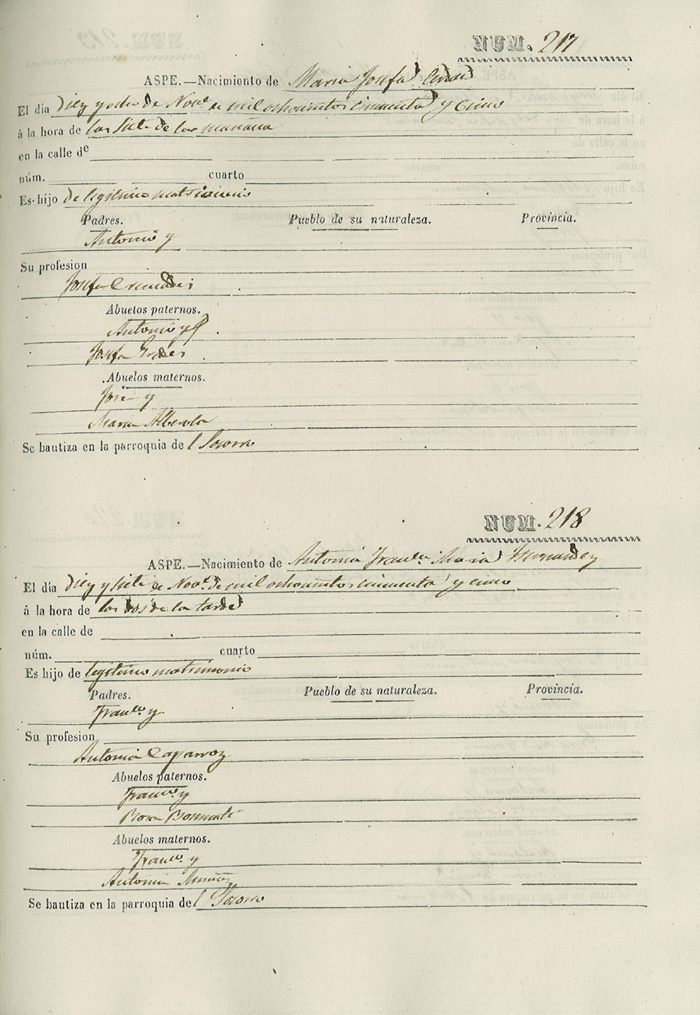 NUM. 217
ASPE.—Nacimiento de Maria Josefa
El dia Diez y ocho de Nove. de mil ochocientos cincuenta y cinco
á la hora de las siete de la mañana
en la calle de
núm. cuarto
Es hijo de legitimo matrimonio
Padres. Pueblo de su naturaleza. Provincia.
Antonio y
Su profesion
Josefa
Abuelos paternos.
Antonio y
Josefa
Abuelos maternos.
José y
Maria Alberola
Se bautiza en la parroquia de l Socorro
NUM. 218
ASPE.—Nacimiento de Antonia Franca. Maria Hernandez
El dia Diez y siete de Nove. de mil ochocientos cincuenta y cinco
á la hora de las dos de la tarde
en la calle de
núm. cuarto
Es hijo de legitimo matrimonio
Padres. Pueblo de su naturaleza. Provincia.
Franco. y
Su profesion
Antonia Caparroz
Abuelos paternos.
Franco. y
Rosa
Abuelos maternos.
Franco. y
Antonia Muñoz
Se bautiza en la parroquia de l Socorro